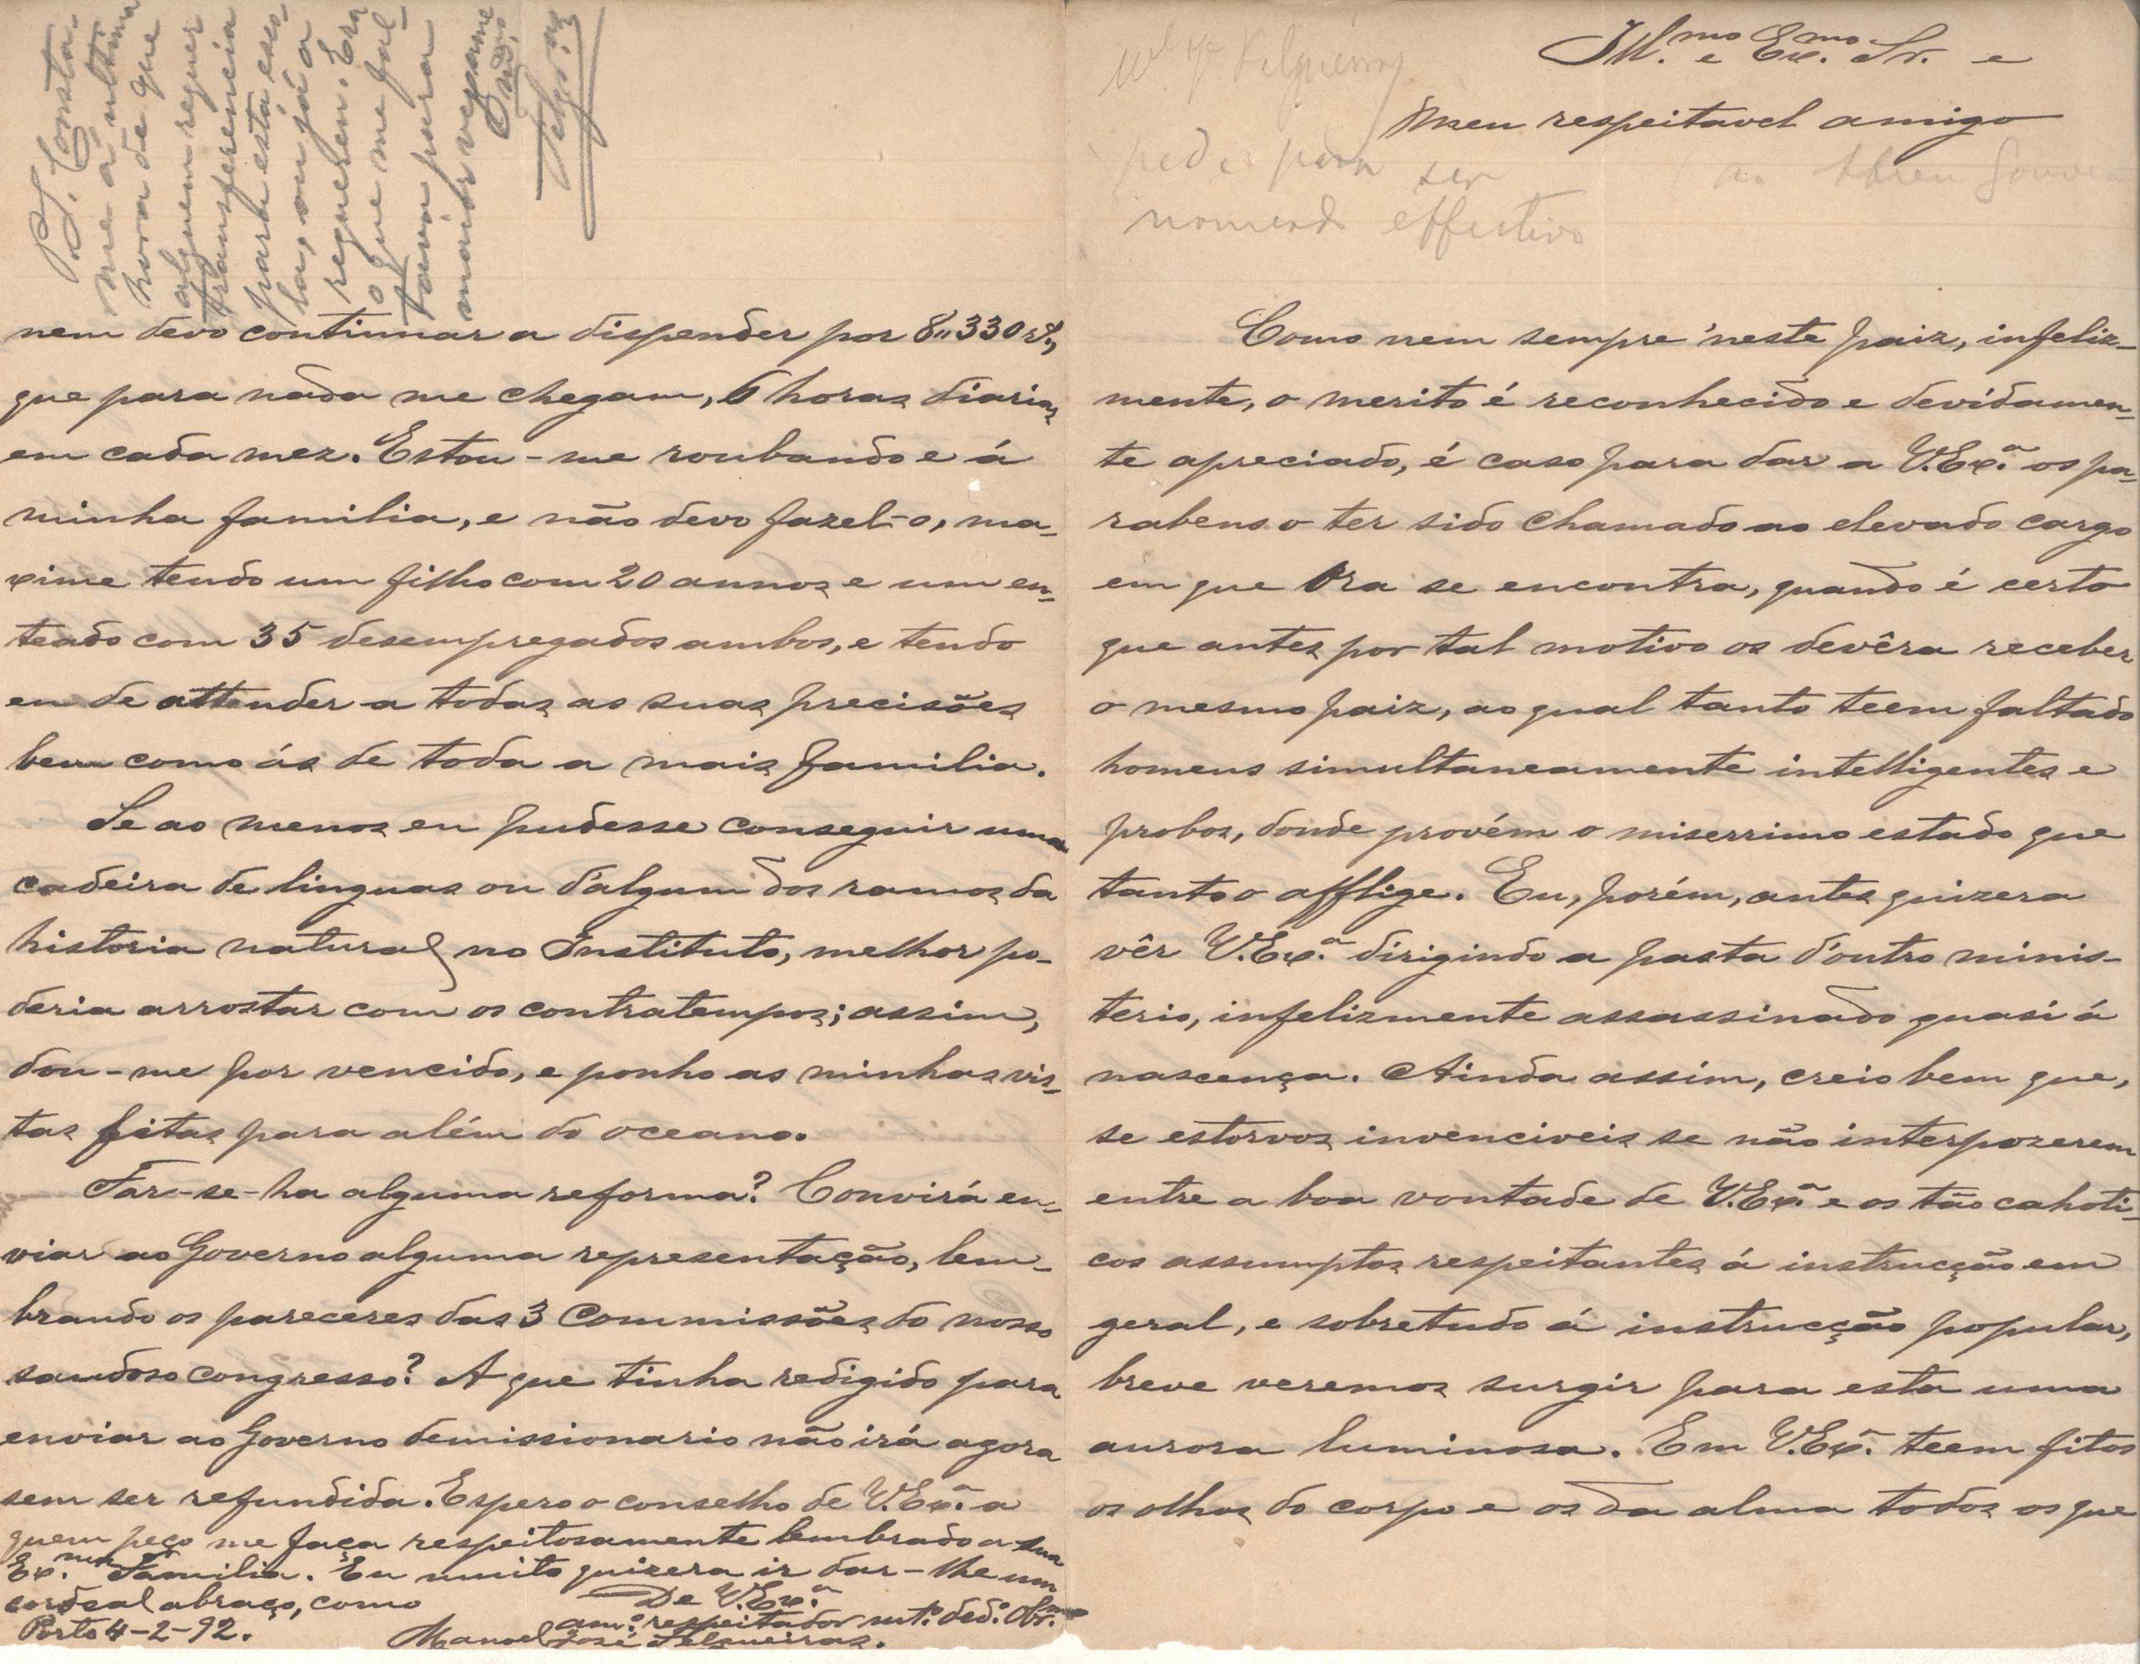 Ill.mo e Ex.mo Sr. e
Meu respeitavel amigo
pede para ser
nomeado effectivo
Como nem sempre n'este paiz, infeliz-
mente, o merito é reconhecido e devidamen-
te apreciado, é caso para dar a V. Ex.ª os pa-
rabens o ter sido chamado ao elevado cargo
em que ora se encontra, quando é certo
que antes por tal motivo os devêra receber
o mesmo paiz, ao qual tanto teem faltado
homens simultaneamente intelligentes e
probos, donde provém o miserrimo estado que
tanto o afflige. Eu, porém, antes quizera
vêr V. Ex.ª dirigindo a pasta d'outro minis-
terio, infelizmente assassinado quasi á
nascença. Ainda assim, creio bem que,
se estorvos invenciveis se não interpozerem
entre a boa vontade de V. Ex.ª e os tão cahoti-
cos assumptos respeitantes á instrucção em
geral, e sobretudo á instrucção popular,
breve veremos surgir para esta uma
aurora luminosa. Em V. Ex.ª teem fitos
os olhos do corpo e os da alma todos os que
nem devo continuar a dispender por 8"330 rs.,
que para nada me chegam, 6 horas diarias
em cada mez. Estou-me roubando e á
minha familia, e não devo fazel-o, ma-
xime tendo um filho com 20 annos e um en-
teado com 35 desempregados ambos, e tendo
eu de attender a todas as suas precisões
bem como ás de toda a mais familia.
Se ao menos eu pudesse conseguir uma
cadeira de linguas ou d'algum dos ramos da
historia natural no Instituto, melhor po-
deria arrostar com os contratempos; assim,
dou-me por vencido, e ponho as minhas vis-
tas fitas para além do oceano.
Far-se-ha alguma reforma? Convirá en-
viar ao Governo alguma representação, lem-
brando os pareceres das 3 Commissões do nosso
saudoso congresso? A que tinha redigido para
enviar ao Governo demissionario não irá agora
sem ser refundida. Espero o conselho de V. Ex.ª a
quem peço me faça respeitosamente lembrado a sua
Ex.ma Familia. Eu muito quizera ir dar-lhe um
cordeal abraço, como
De V. Ex.ª
am.º respeitador mt.º ded.º Obr.mo
Porto 4-2-92.
Manoel José Felgueiras.
P.S. Consta-
me á ultima
hora de que
alguem requer
transferencia
para esta esco-
la, ou já a
requereram. Era
o que me fal-
tava para
maior vexame